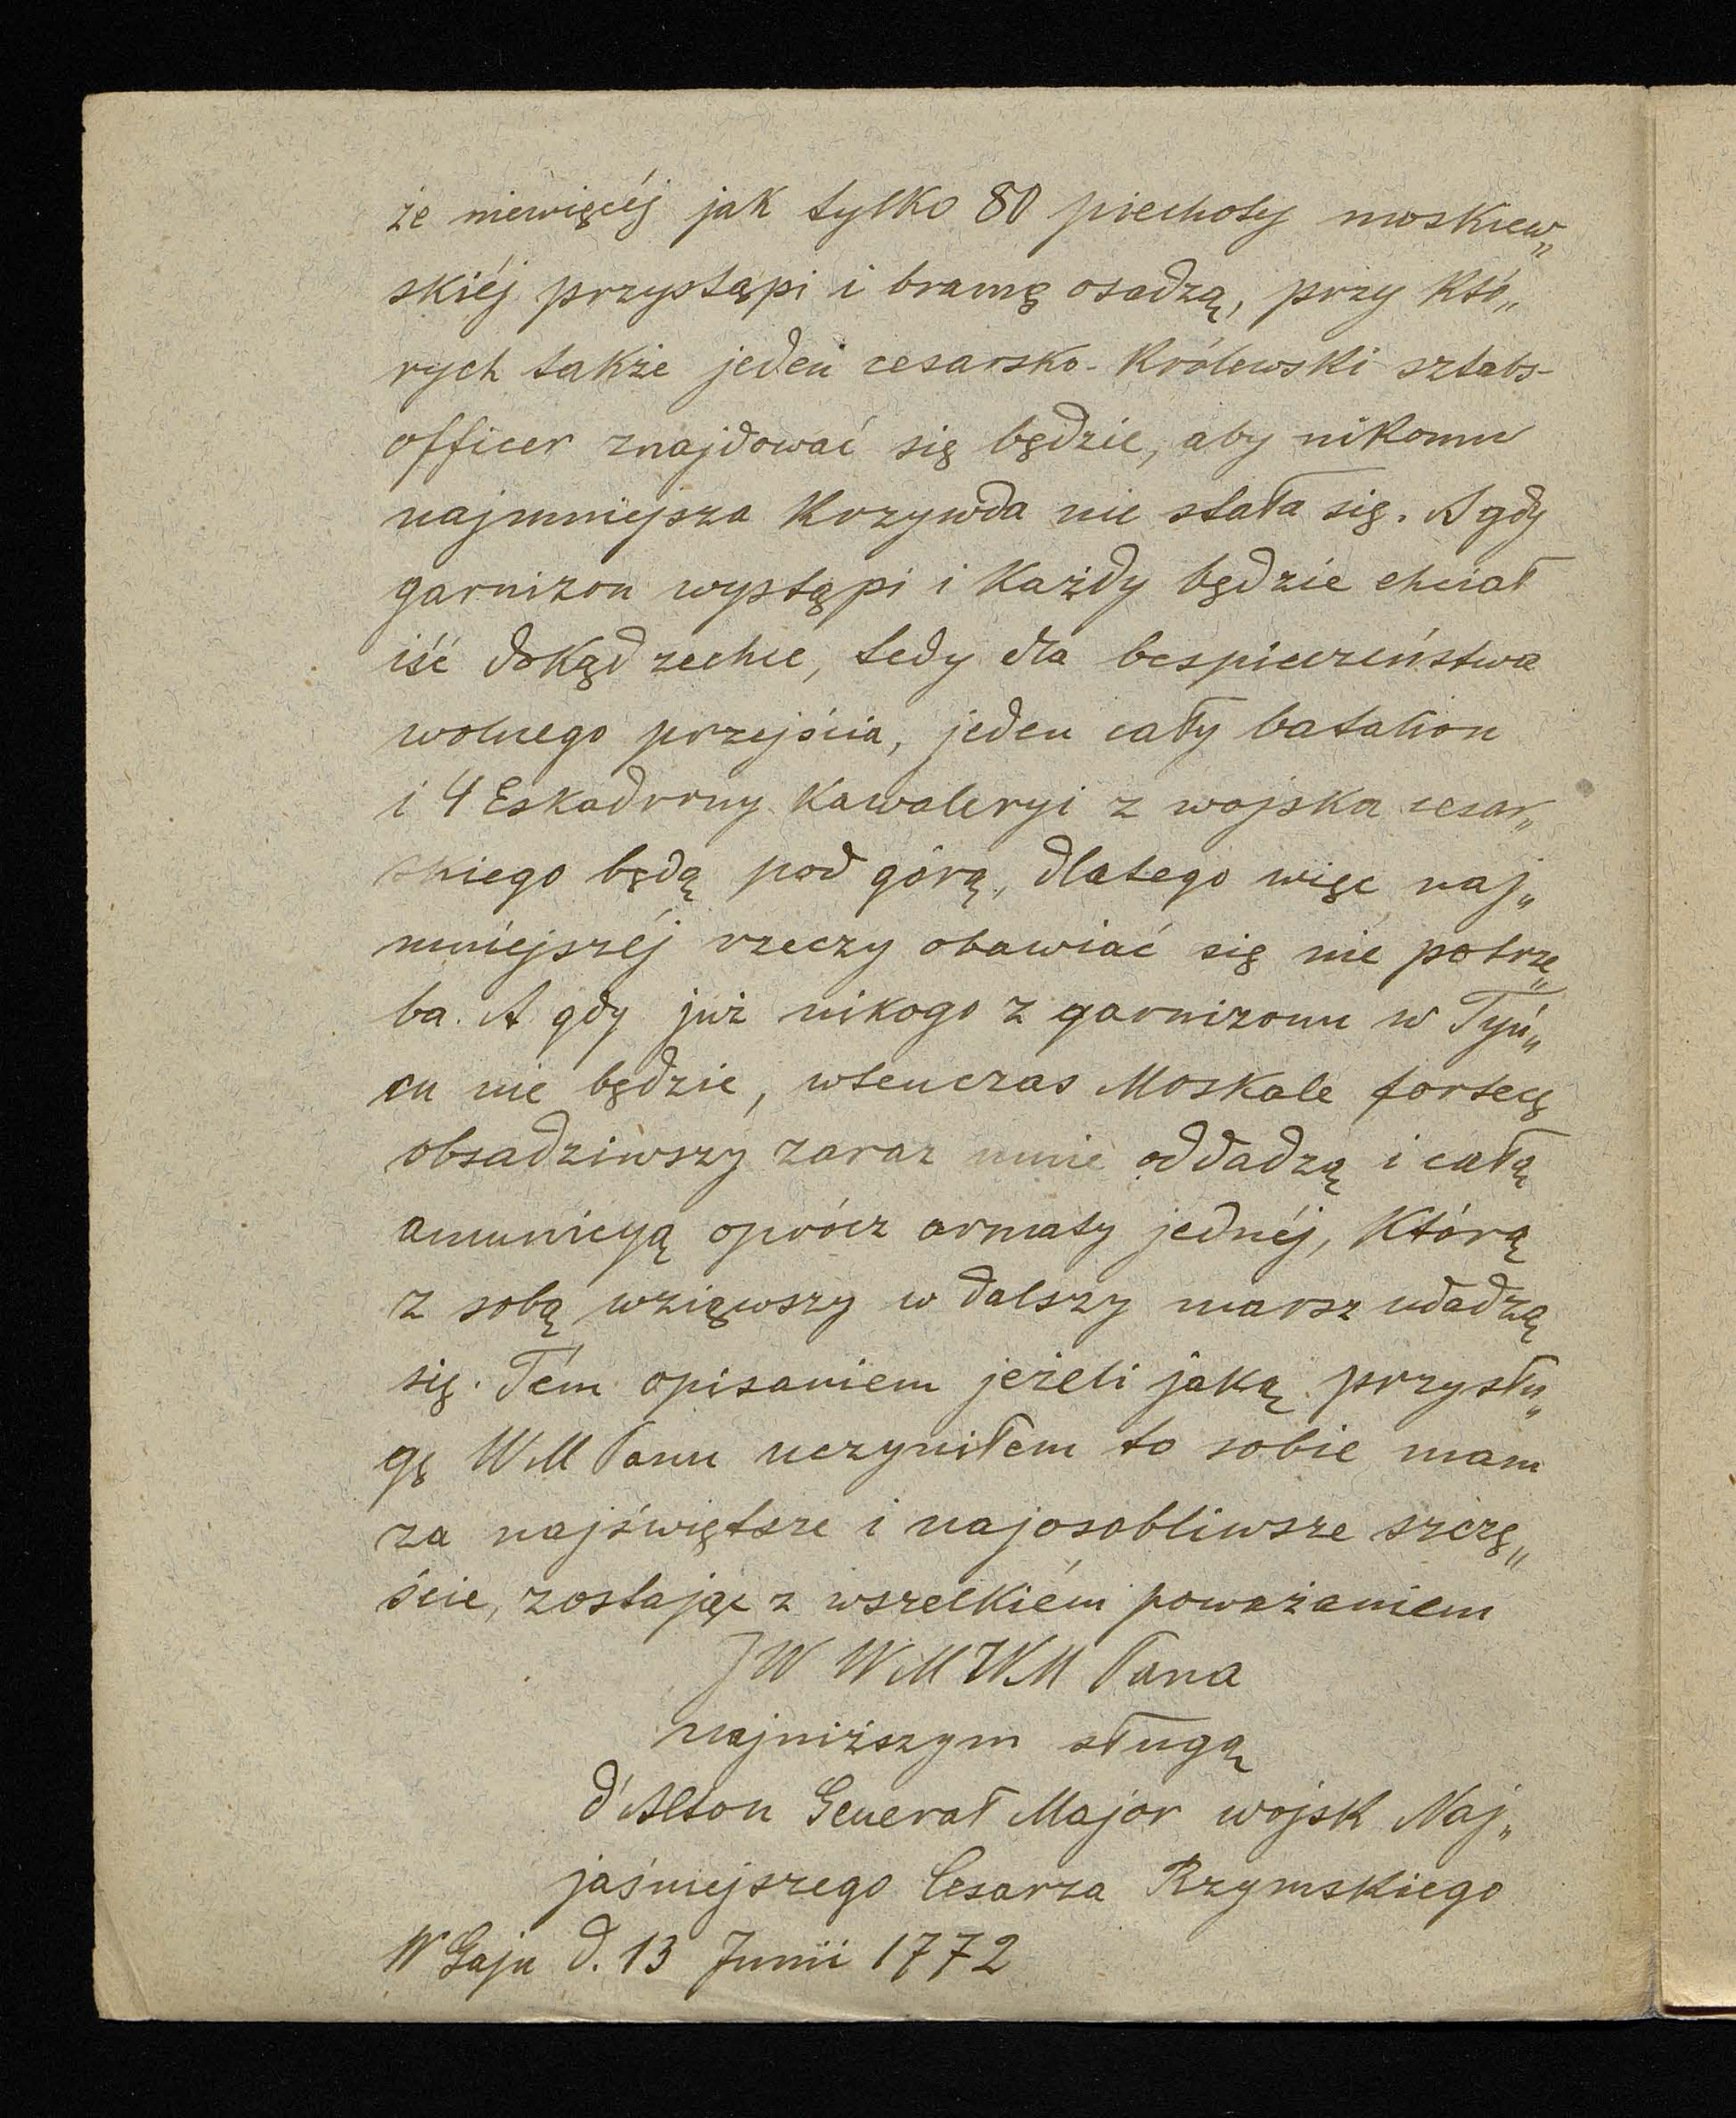 że niewięcéj jak tylko 80 piechoty moskiew„
skiéj przystąpi i bramę osadzą, przy któ„
rych także jeden cesarsko-królewski sztabs-
officer znajdować się będzie, aby nikomu
najmniejsza krzywda nie stała się. A gdy
garnizon wystąpi i każdy będzie chciał
iść dokąd zechce, tedy dla bespieczeństwa
wolnego przejścia, jeden cały batalion
i 4 Eskadrony kawaleryi z wojska cesar„
skiego będą pod górą, dlatego więc naj„
mniejszéj rzeczy obawiać się nie potrze„
ba. A gdy już nikogo z garnizonu w Tyń„
cu nie będzie, wtenczas Moskale fortecę
obsadziwszy zaraz mnie oddadzą i całą
amunicyą oprócz armaty jednéj, którą
z sobą wziąwszy w dalszy marsz udadzą
się. Tém opisaniem jeżeli jaką przysłu„
gę WM Panu uczyniłem to sobie mam
za najświętsze i najosobliwsze szczę„
ście, zostając z wszelkiém poważaniem
JW WM WM Pana
najniższym sługą
d'Alton Generał Major wojsk Naj„
jaśniejszego Cesarza Rzymskiego
W Gaju d. 13 Junii 1772